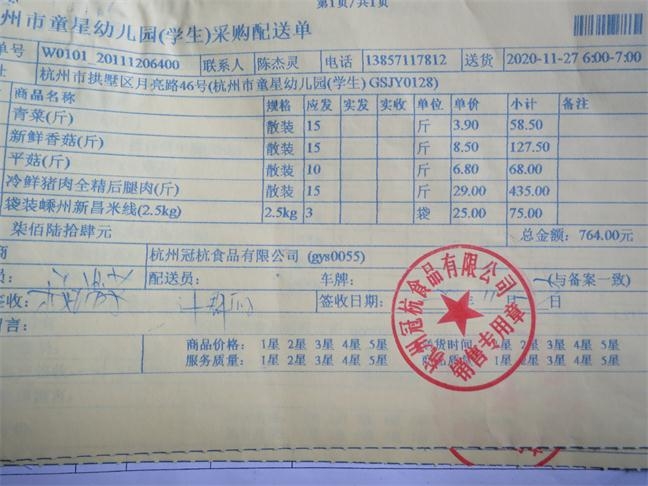 第1页/共1页
州市童星幼儿园(学生)采购配送单
单号 W0101_20111206400 联系人 陈杰灵 电话 13857117812 送货 2020-11-27 6:00-7:00
址 杭州市拱墅区月亮路46号(杭州市童星幼儿园(学生) GSJY0128)
商品名称 规格 应发 实发 实收 单位 单价 小计 备注
青菜(斤) 散装 15 斤 3.90 58.50
新鲜香菇(斤) 散装 15 斤 8.50 127.50
平菇(斤) 散装 10 斤 6.80 68.00
冷鲜猪肉全精后腿肉(斤) 散装 15 斤 29.00 435.00
袋装嵊州新昌米线(2.5kg) 2.5kg 3 袋 25.00 75.00
柒佰陆拾肆元 总金额：764.00元
商 杭州冠杭食品有限公司 (gys0055)
员： 配送员： 车牌： (与备案一致)
签收： 签收日期： 11 日
留言：
商品价格： 1星 2星 3星 4星 5星 送货时间： 1星 2星 3星 4星 5星
服务质量： 1星 2星 3星 4星 5星 商品质量： 1星 2星 3星 4星 5星
杭州冠杭食品有限公司
销售专用章